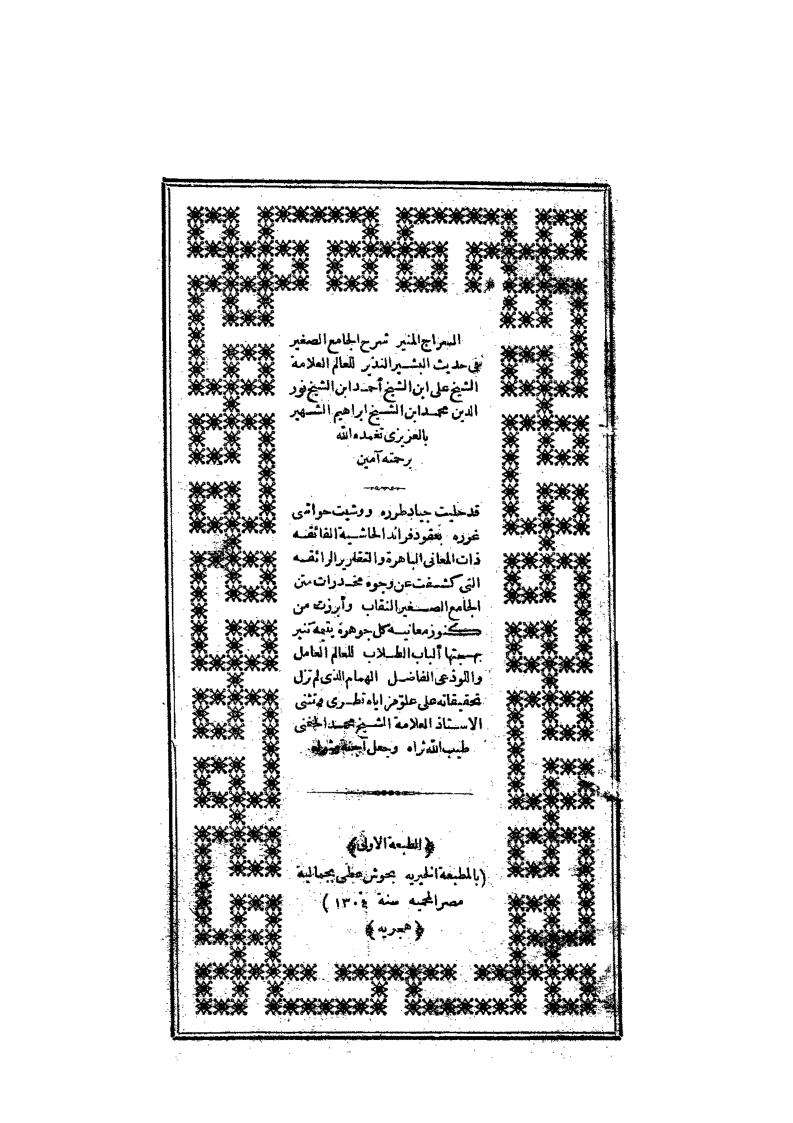 السراج المنير شرح الجامع الصغير
فى حديث البشير النذير للعالم العلامة
الشيخ على ابن الشيخ أحمد ابن الشيخ نور
الدين محمد ابن الشيخ ابراهيم الشهير
بالعزيزى تغمده الله
برحمته آمين
قد حليت جياد طرره ووشيت حواشى
غرره بعقود فرائد الحاشية الفائقه
ذات المعانى الباهرة والتقارير الرائقه
التى كشفت عن وجوه مخدرات متن
الجامع الصغير النقاب وأبرزت من
كنوز معانيه كل جوهرة يتيمة تنير
ببهجتها ألباب الطلاب للعالم العامل
واللوذعى الفاضل الهمام الذى لم تزل
تحقيقاته على علو مزاياه تطرى وتثنى
الاستاذ العلامة الشيخ محمد الحفنى
طيب الله ثراه وجعل الجنة مثواه
﴿الطبعة الاولى﴾
(بالمطبعة الخيريه بحوش عطى بجمالية
مصر المحميه سنة ١٣٠٤)
﴿هجريه﴾